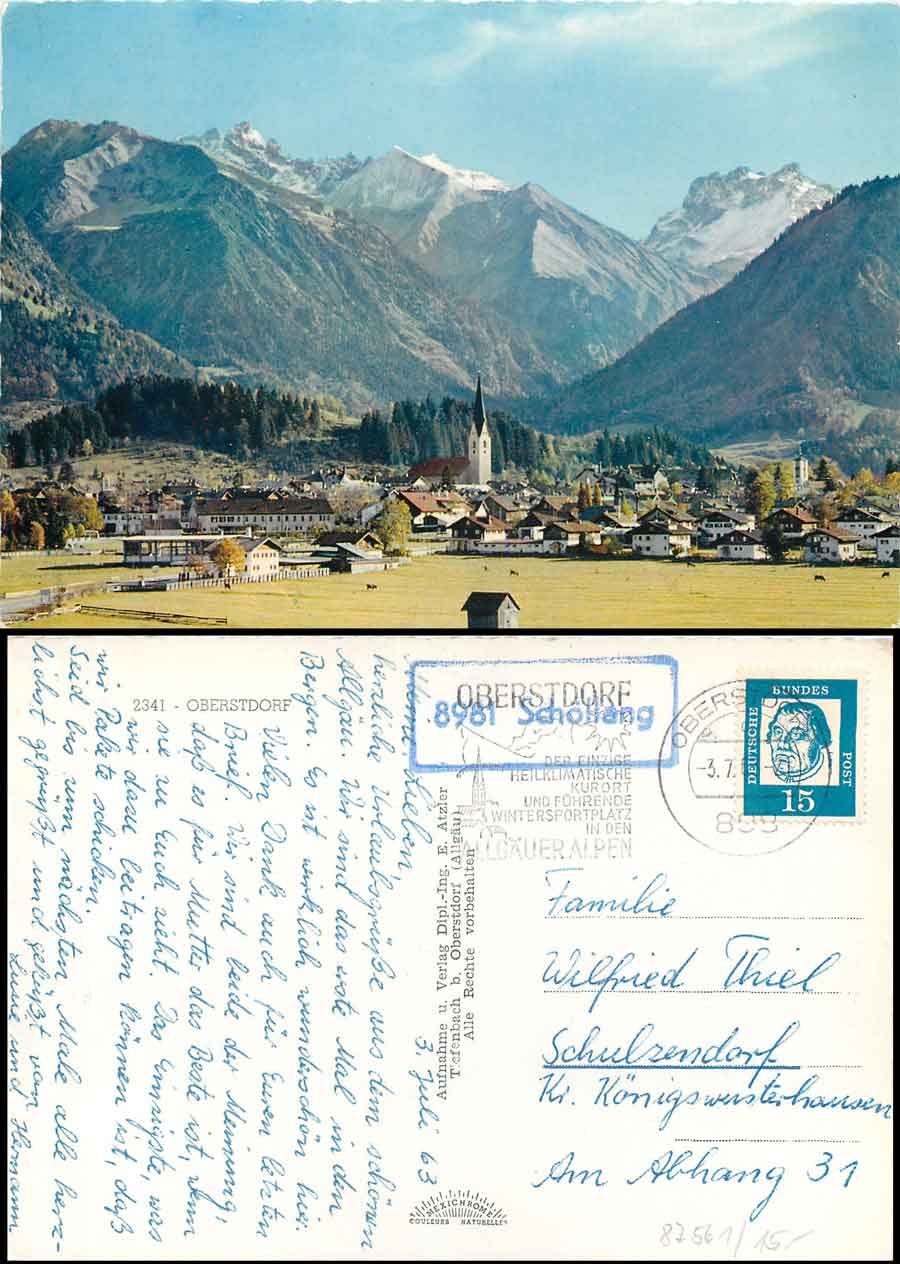 2341 - OBERSTDORF
3. Juli 63
Meine Lieben,
herzliche Urlaubsgrüße aus dem schönen
Allgäu. Wir sind das erste Mal in den
Bergen. Es ist wirklich wunderschön hier.
Vielen Dank auch für Euren letzten
Brief. Wir sind beide der Meinung,
daß es für Mutter das Beste ist, wenn
sie zu Euch zieht. Das Einzigste, was
wir dazu beitragen können ist, daß
wir Pakete schicken.
Seid bis zum nächsten Male alle herz-
lichst gegrüßt und geküßt von
und Hermann
Aufnahme u. Verlag Dipl.-Ing. E. Atzler
Tiefenbach b. Oberstdorf (Allgäu)
Alle Rechte vorbehalten
MEXICHROME
COULEURS NATURELLES
8981 Schöllang
OBERSTDORF
DER EINZIGE
HEILKLIMATISCHE
KURORT
UND FÜHRENDE
WINTERSPORTPLATZ
IN DEN
ALLGÄUER ALPEN
OBERSTDORF
-3.7.
899
DEUTSCHE
BUNDES
POST
15
Familie
Wilfried Thiel
Schulzendorf
Kr. Königswusterhausen
Am Abhang 31
87561/15-